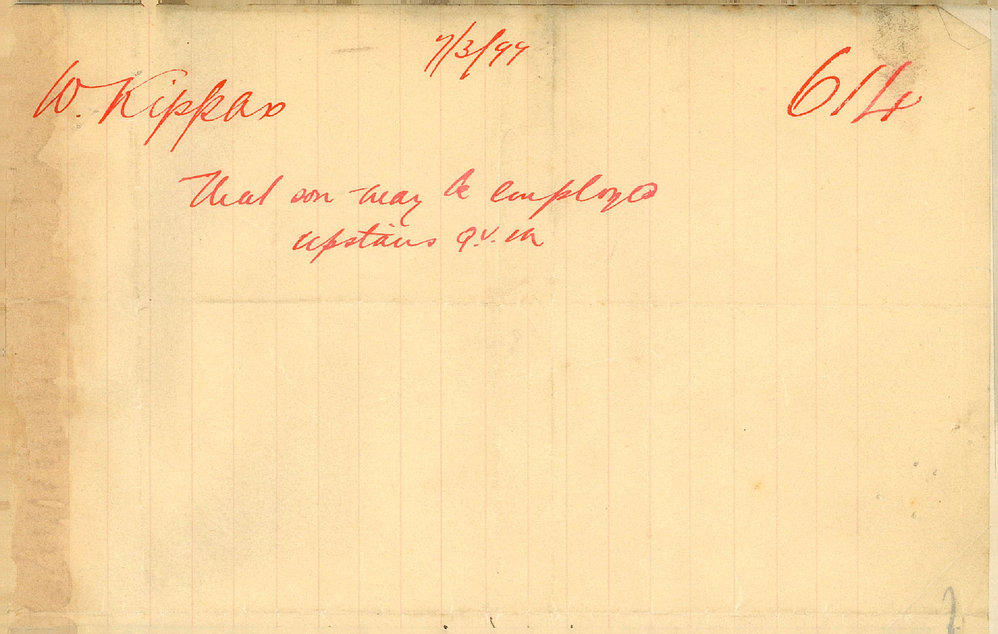 7/3/99
W. Kippax
614
That son may be employed
upstairs Q.V.M